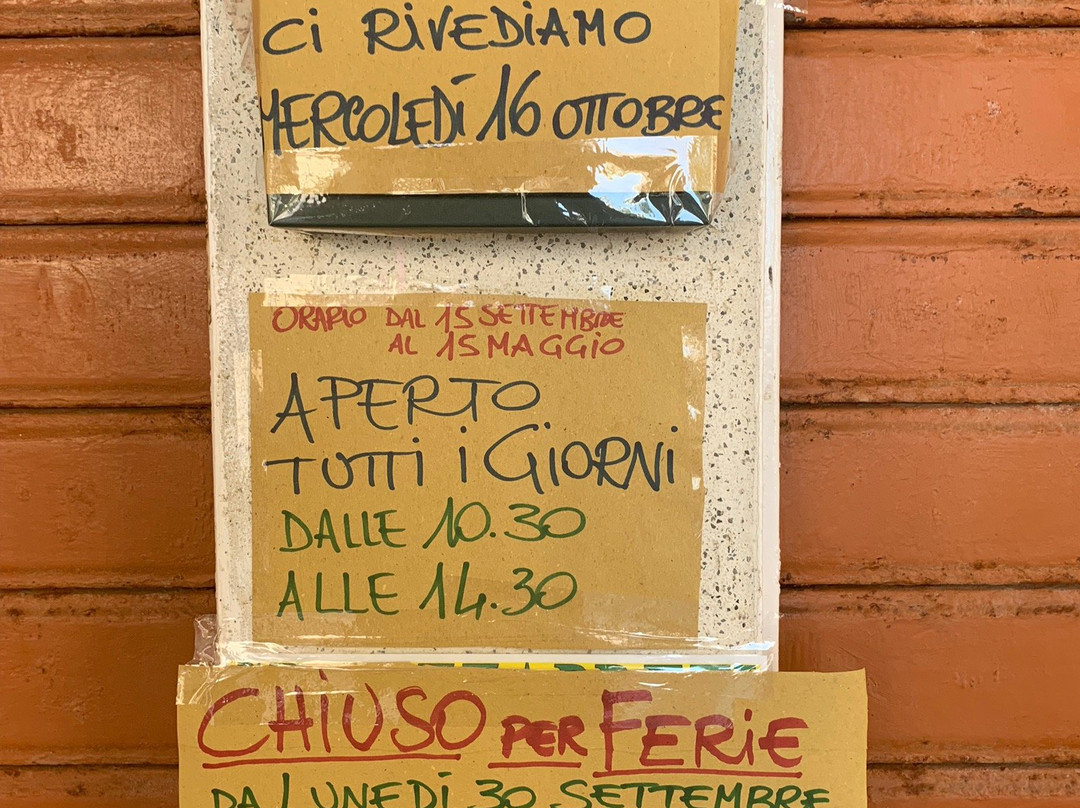 Ci RiVEDiAMO
MERCOLEDÌ 16 OTTOBRE
ORARIO DAL 15 SETTEMBRE
AL 15 MAGGIO
APERTO
TUTTI i GIORNi
DALLE 10.30
ALLE 14.30
CHiUSO PER FERiE
DA LUNEDÌ 30 SETTEMBRE